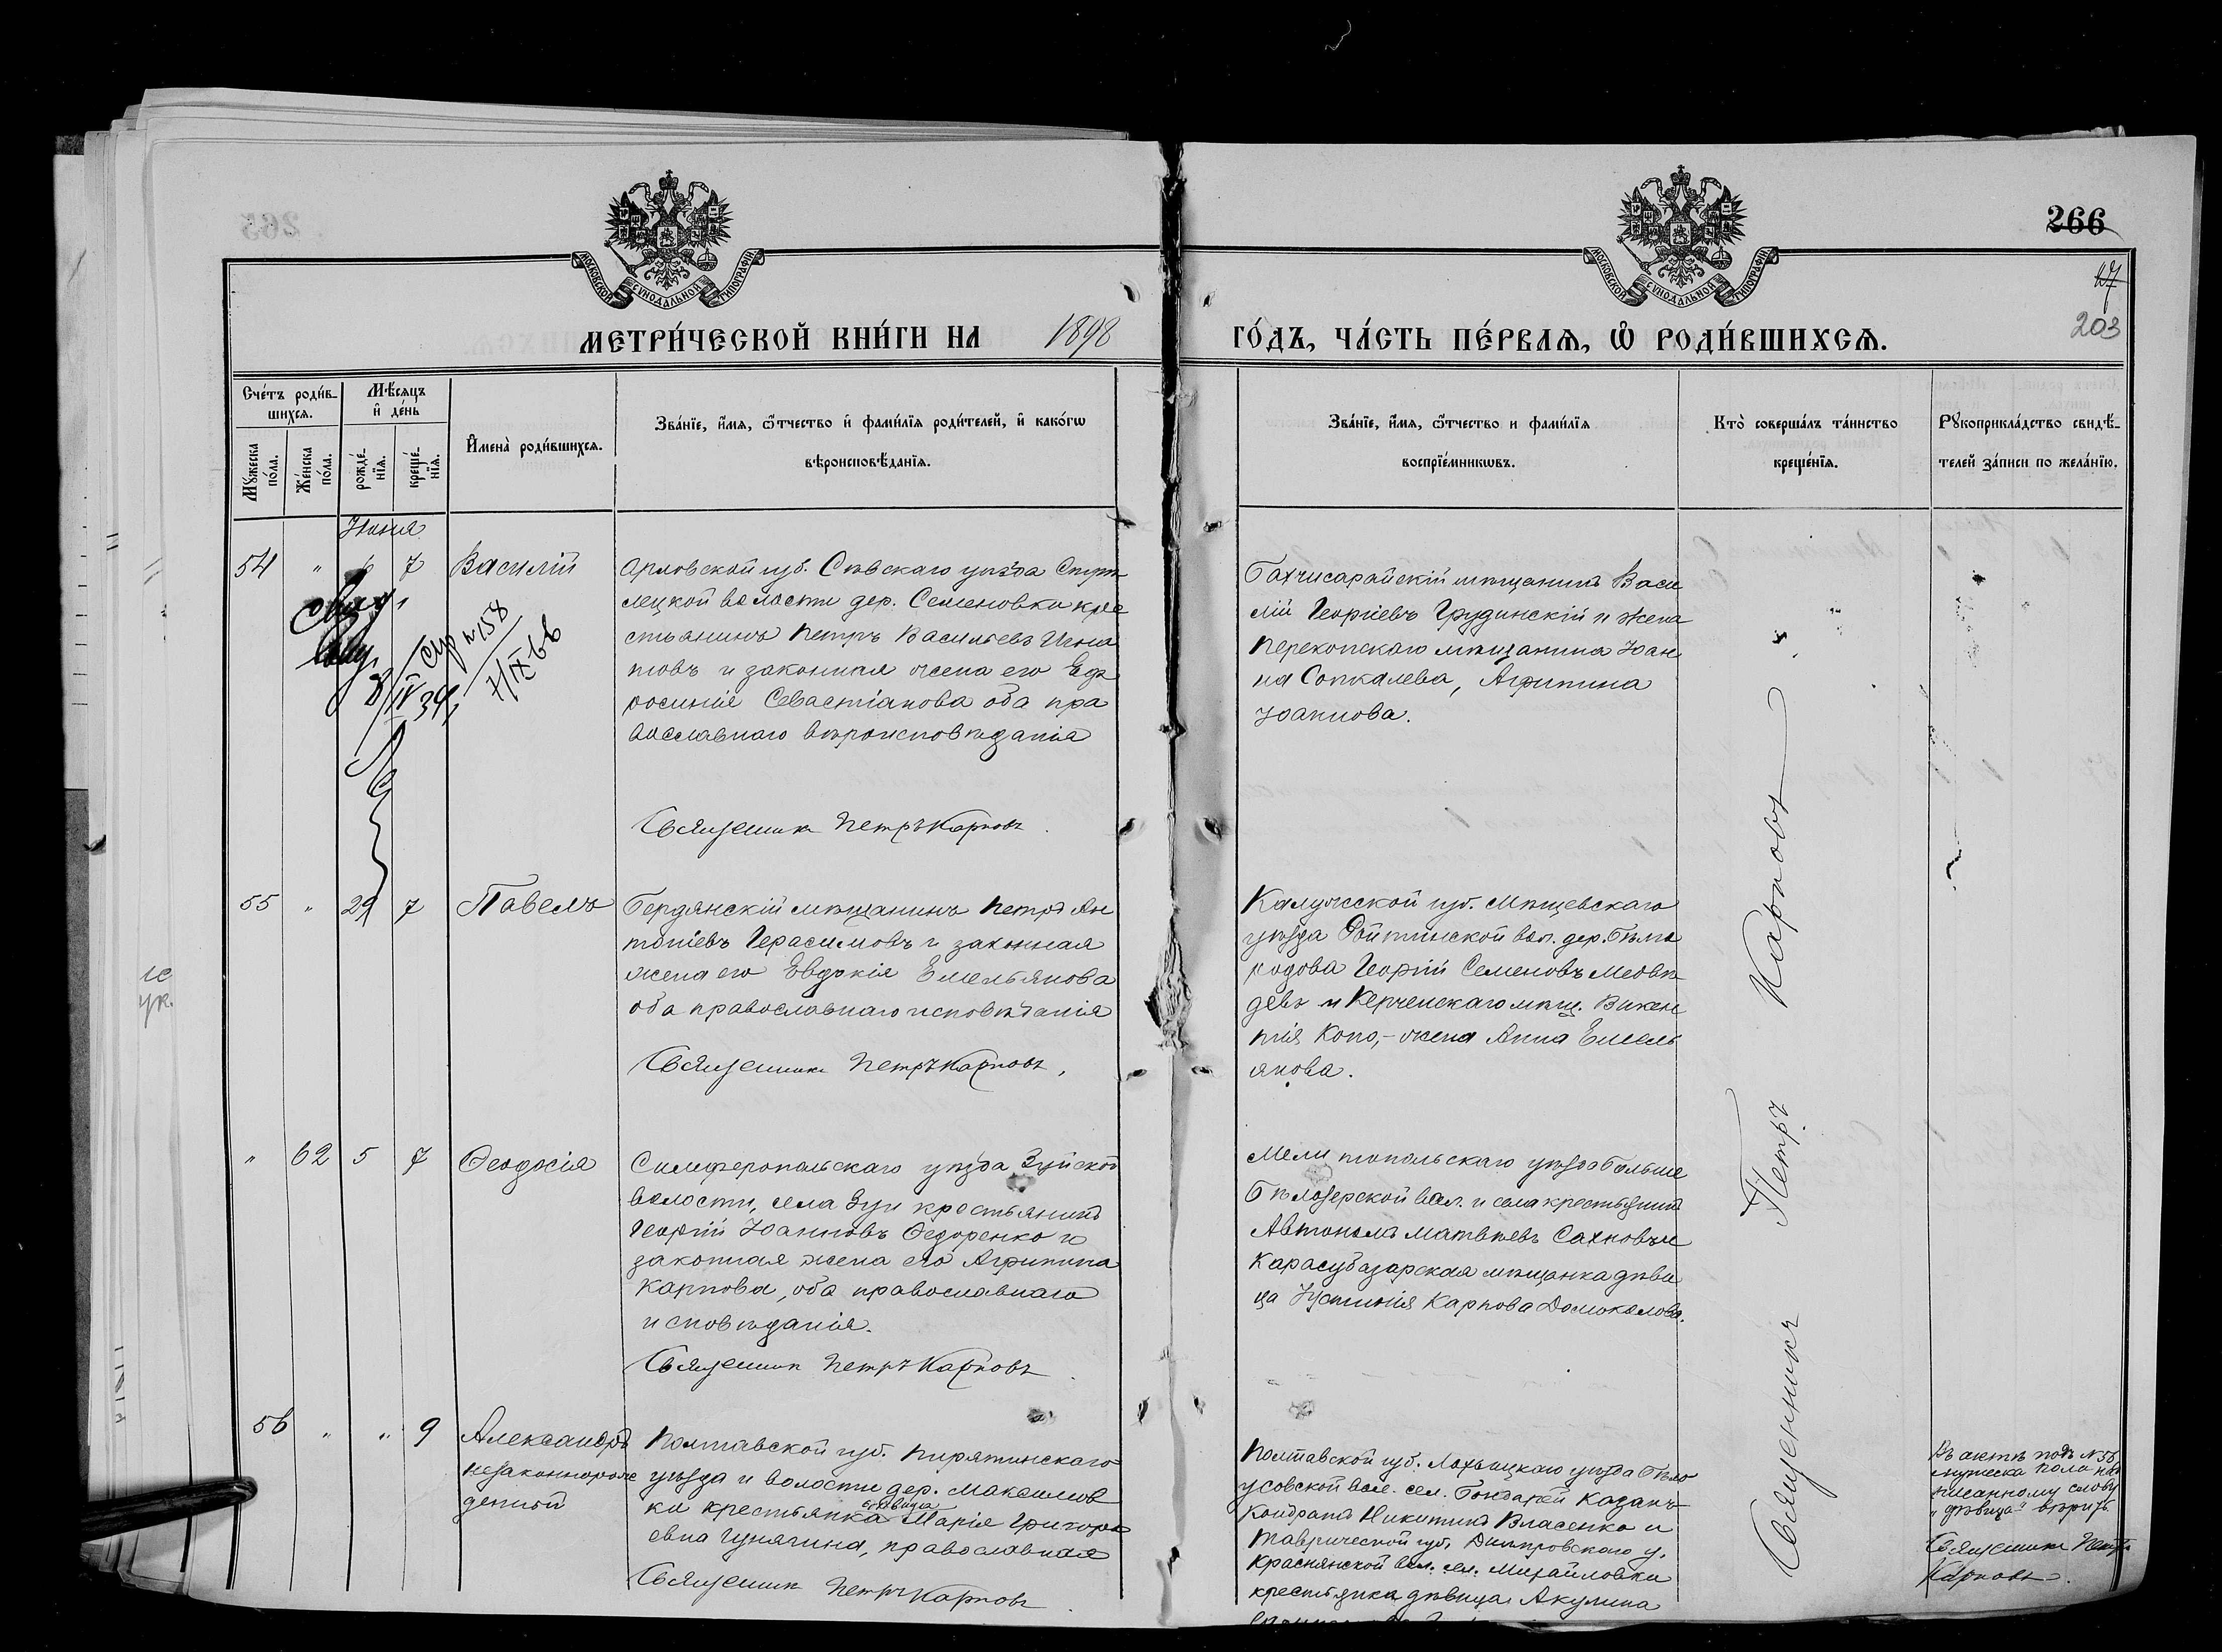 266
203
МОСКОВСКОЙ СѴНОДАЛЬНОЙ ТИПОГРАФІИ
МОСКОВСКОЙ СѴНОДАЛЬНОЙ ТИПОГРАФІИ
МЕТРИ́ЧЕСКОЙ КНИ́ГИ НА 1898 ГО́ДЪ, ЧА́СТЬ ПЕ́РВАѦ, Ѽ РОДИ́ВШИХСѦ.
Сче́тъ роди́в-
шихсѧ.
Мѣ́сѧцъ
и҆ де́нь
Мꙋ́жеска по́ла.
Же́нска по́ла.
рожде́-
нїѧ.
креще́-
нїѧ.
И҆мена̀ роди́вшихсѧ.
Зва́нїе, и҆́мѧ, ѻ҆́тчество и҆ фами́лїѧ роди́телей, и҆ како́гѡ
вѣроисповѣ́данїѧ.
Зва́нїе, и҆́мѧ, ѻ҆́тчество и фами́лїѧ
воспрїе́мникѡвъ.
Кто̀ соверша́лъ та́инство
креще́нїѧ.
Рꙋкоприкла́дство свидѣ́-
телей за́писи по жела́нїю.
Июня
54 " 6 7 Василій
Орловской губ. Сѣвскаго уѣзда Стрѣ
лецкой волости дер. Семеновки кре
стьянинъ Петръ Васильевъ Игна
товъ и законная жена его Евф
росинія Севастіанова оба пра
вославнаго вѣроисповѣданія
Священникъ Петръ Карповъ.
Бахчисарайскій мѣщанинъ Васи
лій Георгіевъ Грудинскій и жена
Перекопскаго мѣщанина Іоан
на Сопкалева, Агрипина
Іоаннова.
8/IV 34
№ 158
7/IX 66
55 " 29 7 Павелъ
Бердянскій мѣщанинъ Петръ Ан
тоніевъ Герасимовъ и законная
жена его Евдокія Емельянова
оба православнаго исповѣданія
Священникъ Петръ Карповъ.
Калужской губ. Мѣщевскаго
уѣзда вол. дер. Бѣло
родова Георгій Семеновъ Медвѣ
девъ и Керченскаго мѣщ. Викен
тія Копо,- жена Анна Емель
янова.
" 62 5 7 Ѳеодосія
Симферопольскаго уѣзда Зуйской
волости, села Зуи крестьянинъ
Георгій Іоанновъ Ѳедоренко и
законная жена его Агрипина
Карпова, оба православнаго
исповѣданія.
Священник Петръ Карповъ
Мелитопольскаго уѣзда Больше
Бѣлозерской вол. и села крестьянинъ
Автономъ Матвѣевъ Сахновъ и
Карасубазарская мѣщанка дѣви
ца Іустинія Карпова Домокалова.
56 " " 9 Александръ
незаконнорож
денный
Полтавской губ. Пирятинскаго
уѣзда и волости дер. Максимов
ки крестьянка дѣвица Марія Григорь
евна Гунягина, православная
Священник Петръ Карповъ
Полтавской губ. Лохвицкаго уѣзда Бѣло
усовской вол. сел. Бондарей казакъ
Кондратъ Никитинъ Власенко и
Таврической губ. Днѣпровскаго у.
Краснянской вол. сел. Михайловки
крестьянка дѣвица Акулина
Священникъ Петръ Карповъ
Въ актѣ подъ № 56
мужеска пола
писанному слову
"дѣвица" вѣрить
Священник Петръ
Карповъ.